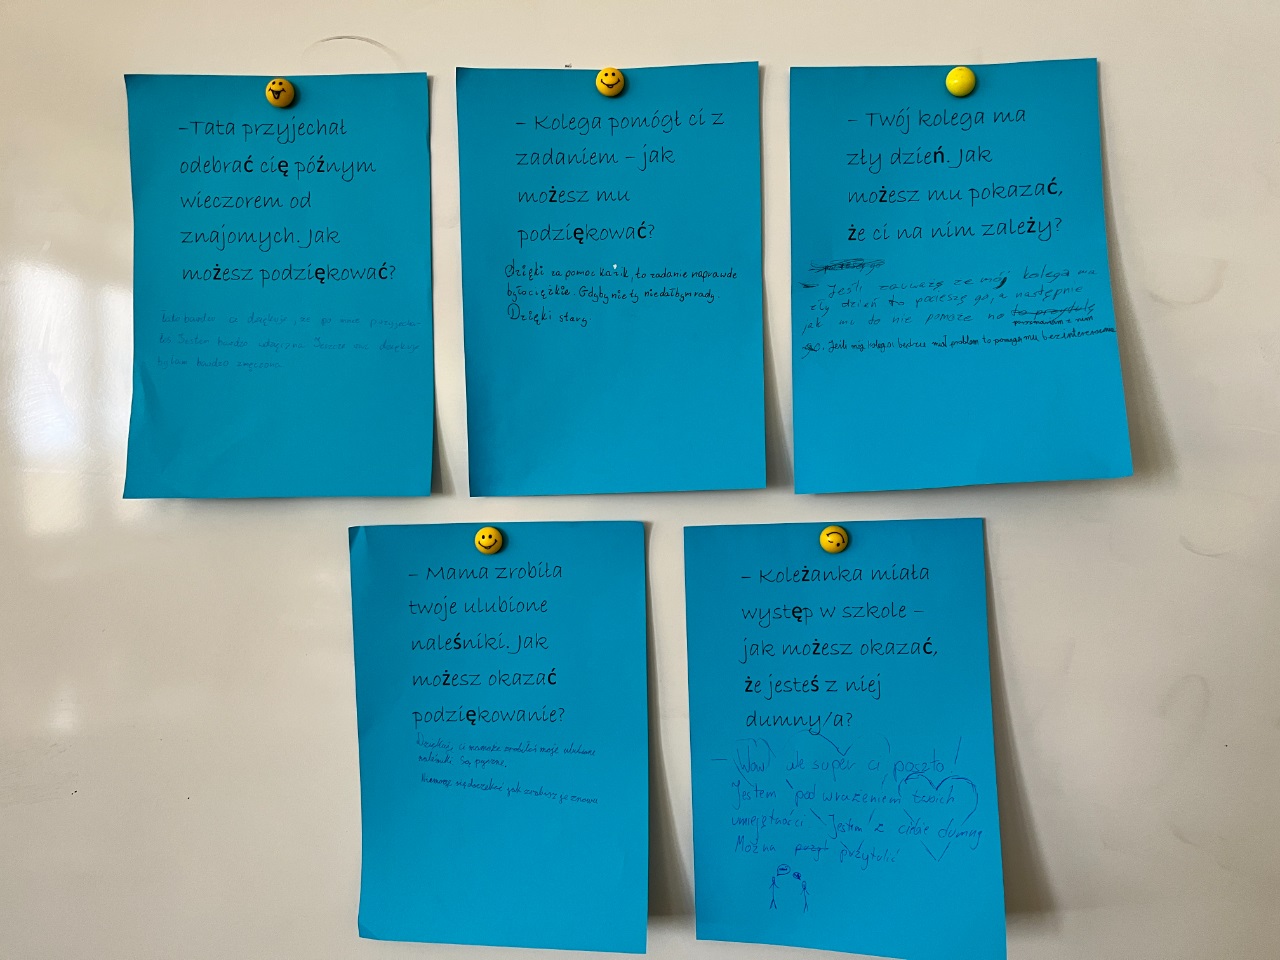 -Tata przyjechał
odebrać cię późnym
wieczorem od
znajomych. Jak
możesz podziękować?
Tato bardzo ci dziękuję, że po mnie przyjecha-
łeś Jestem bardzo wdzięczna Jeszcze raz dziękuję
byłam bardzo zmęczona.
- Kolega pomógł ci z
zadaniem - jak
możesz mu
podziękować?
Dzięki za pomoc to zadanie naprawde
było ciężkie. Gdyby nie ty nie dałbym rady.
Dzięki stary
- Twój kolega ma
zły dzień. Jak
możesz mu pokazać,
że ci na nim zależy?
- Jeśli zauważę że mój kolega ma
zły dzień to pocieszę go, a następnie
jak mu to nie pomoże to przytulę
porozmawiam z nim
go. Jeśli mój kolega będzie miał problem to pomogę mu bezinteresownie
- Mama zrobiła
twoje ulubione
naleśniki. Jak
możesz okazać
podziękowanie?
Dziękuję ci mamo zrobiłaś moje ulubione
naleśniki Są pyszne.
jak zrobisz je znowu
- Koleżanka miała
występ w szkole -
jak możesz okazać,
że jesteś z niej
dumny/a?
- Wow ale super ci poszło!
Jestem pod wrażeniem twoich
umiejętności Jestem z ciebie dumny
Można przyt przytulić